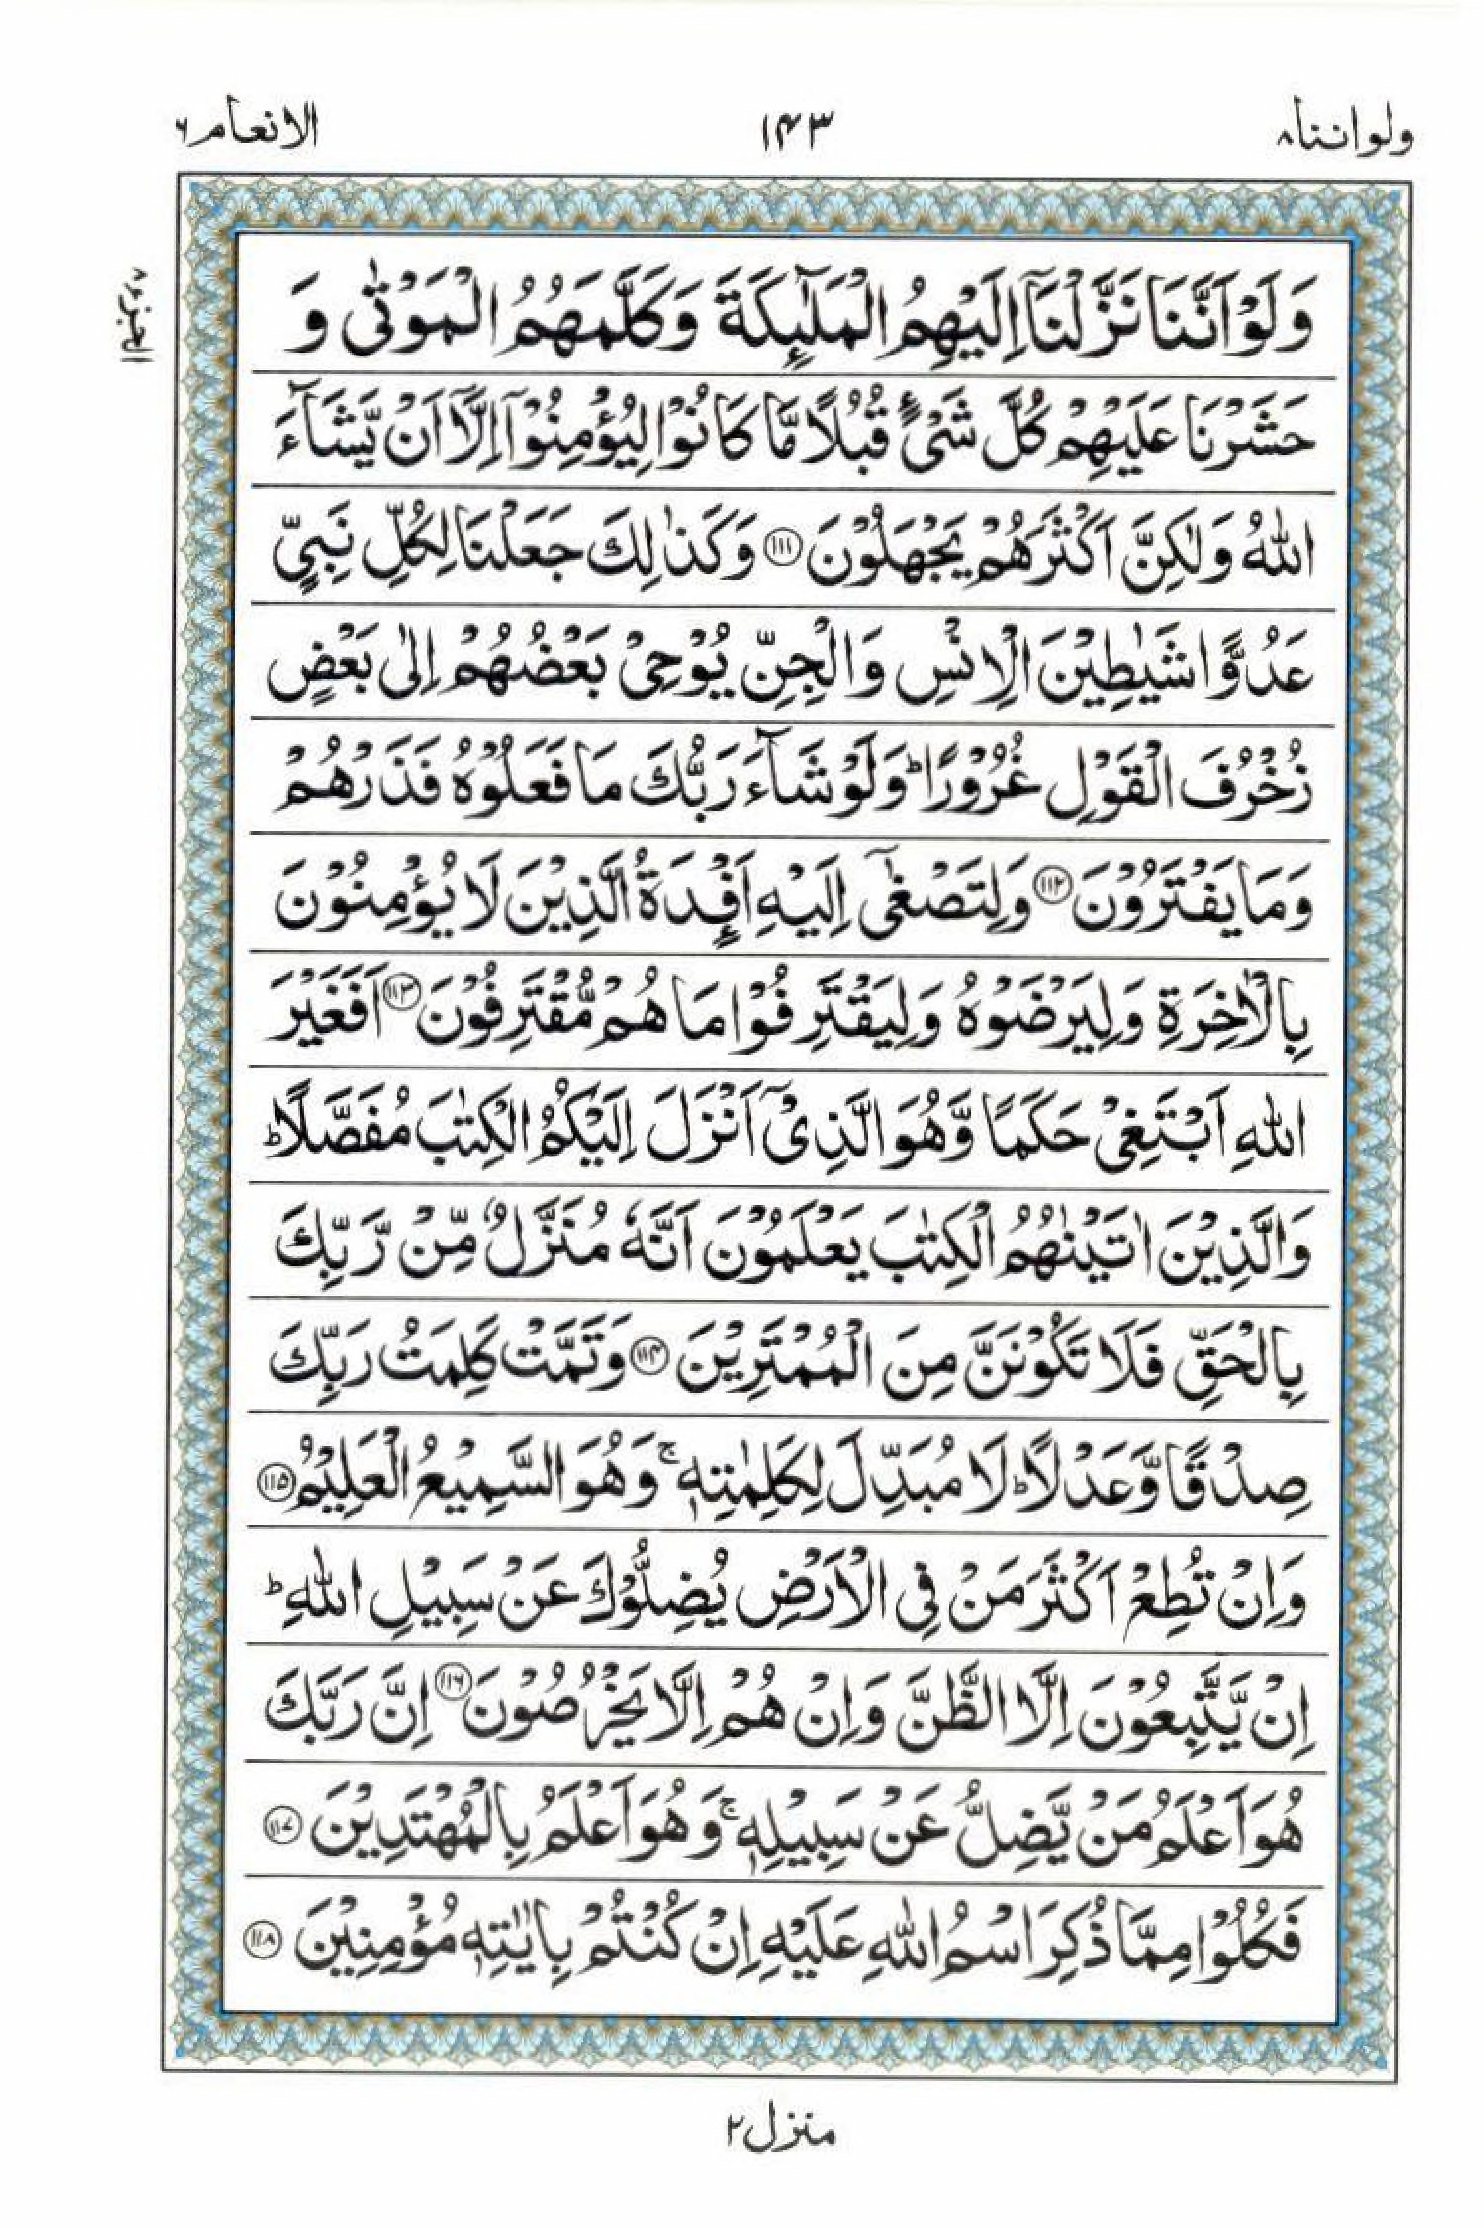 ولواننا ۸
۱۴۳
الانعام ۶
الجزء ۸
وَلَوۡ اَنَّنَا نَزَّلۡنَاۤ اِلَيۡهِمُ الۡمَلٰٓئِكَةَ وَكَلَّمَهُمُ الۡمَوۡتٰى وَ
حَشَرۡنَا عَلَيۡهِمۡ كُلَّ شَىۡءٍ قُبُلًا مَّا كَانُوۡا لِيُؤۡمِنُوۡۤا اِلَّاۤ اَنۡ يَّشَآءَ
اللّٰهُ وَلٰـكِنَّ اَكۡثَرَهُمۡ يَجۡهَلُوۡنَ ﴿۱۱۱﴾ وَكَذٰلِكَ جَعَلۡنَا لِكُلِّ نَبِىٍّ
عَدُوًّا شَيٰطِيۡنَ الۡاِنۡسِ وَالۡجِنِّ يُوۡحِىۡ بَعۡضُهُمۡ اِلٰى بَعۡضٍ
زُخۡرُفَ الۡقَوۡلِ غُرُوۡرًا‌ ؕ وَلَوۡ شَآءَ رَبُّكَ مَا فَعَلُوۡهُ فَذَرۡهُمۡ
وَمَا يَفۡتَرُوۡنَ ﴿۱۱۲﴾ وَلِتَصۡغٰٓى اِلَيۡهِ اَفۡـِٕدَةُ الَّذِيۡنَ لَا يُؤۡمِنُوۡنَ
بِالۡاٰخِرَةِ وَلِيَرۡضَوۡهُ وَلِيَقۡتَرِفُوۡا مَا هُمۡ مُّقۡتَرِفُوۡنَ ﴿۱۱۳﴾ اَفَغَيۡرَ
اللّٰهِ اَبۡتَغِىۡ حَكَمًا وَّهُوَ الَّذِىۡۤ اَنۡزَلَ اِلَيۡكُمُ الۡـكِتٰبَ مُفَصَّلًا‌ ؕ
وَالَّذِيۡنَ اٰتَيۡنٰهُمُ الۡـكِتٰبَ يَعۡلَمُوۡنَ اَنَّهٗ مُنَزَّلٌ مِّنۡ رَّبِّكَ
بِالۡحَـقِّ‌ فَلَا تَكُوۡنَنَّ مِنَ الۡمُمۡتَرِيۡنَ ﴿۱۱۴﴾ وَتَمَّتۡ كَلِمَتُ رَبِّكَ
صِدۡقًا وَّعَدۡلًا‌ ؕ لَا مُبَدِّلَ لِكَلِمٰتِهٖ‌ ۚ وَهُوَ السَّمِيۡعُ الۡعَلِيۡمُ ﴿۱۱۵﴾
وَاِنۡ تُطِعۡ اَكۡثَرَ مَنۡ فِى الۡاَرۡضِ يُضِلُّوۡكَ عَنۡ سَبِيۡلِ اللّٰهِ‌ ؕ
اِنۡ يَّتَّبِعُوۡنَ اِلَّا الظَّنَّ وَاِنۡ هُمۡ اِلَّا يَخۡرُصُوۡنَ ﴿۱۱۶﴾ اِنَّ رَبَّكَ
هُوَ اَعۡلَمُ مَنۡ يَّضِلُّ عَنۡ سَبِيۡلِهٖ‌ ۚ وَهُوَ اَعۡلَمُ بِالۡمُهۡتَدِيۡنَ ﴿۱۱۷﴾
فَكُلُوۡا مِمَّا ذُكِرَ اسۡمُ اللّٰهِ عَلَيۡهِ اِنۡ كُنۡتُمۡ بِاٰيٰتِهٖ مُؤۡمِنِيۡنَ ﴿۱۱۸﴾
منزل ۲